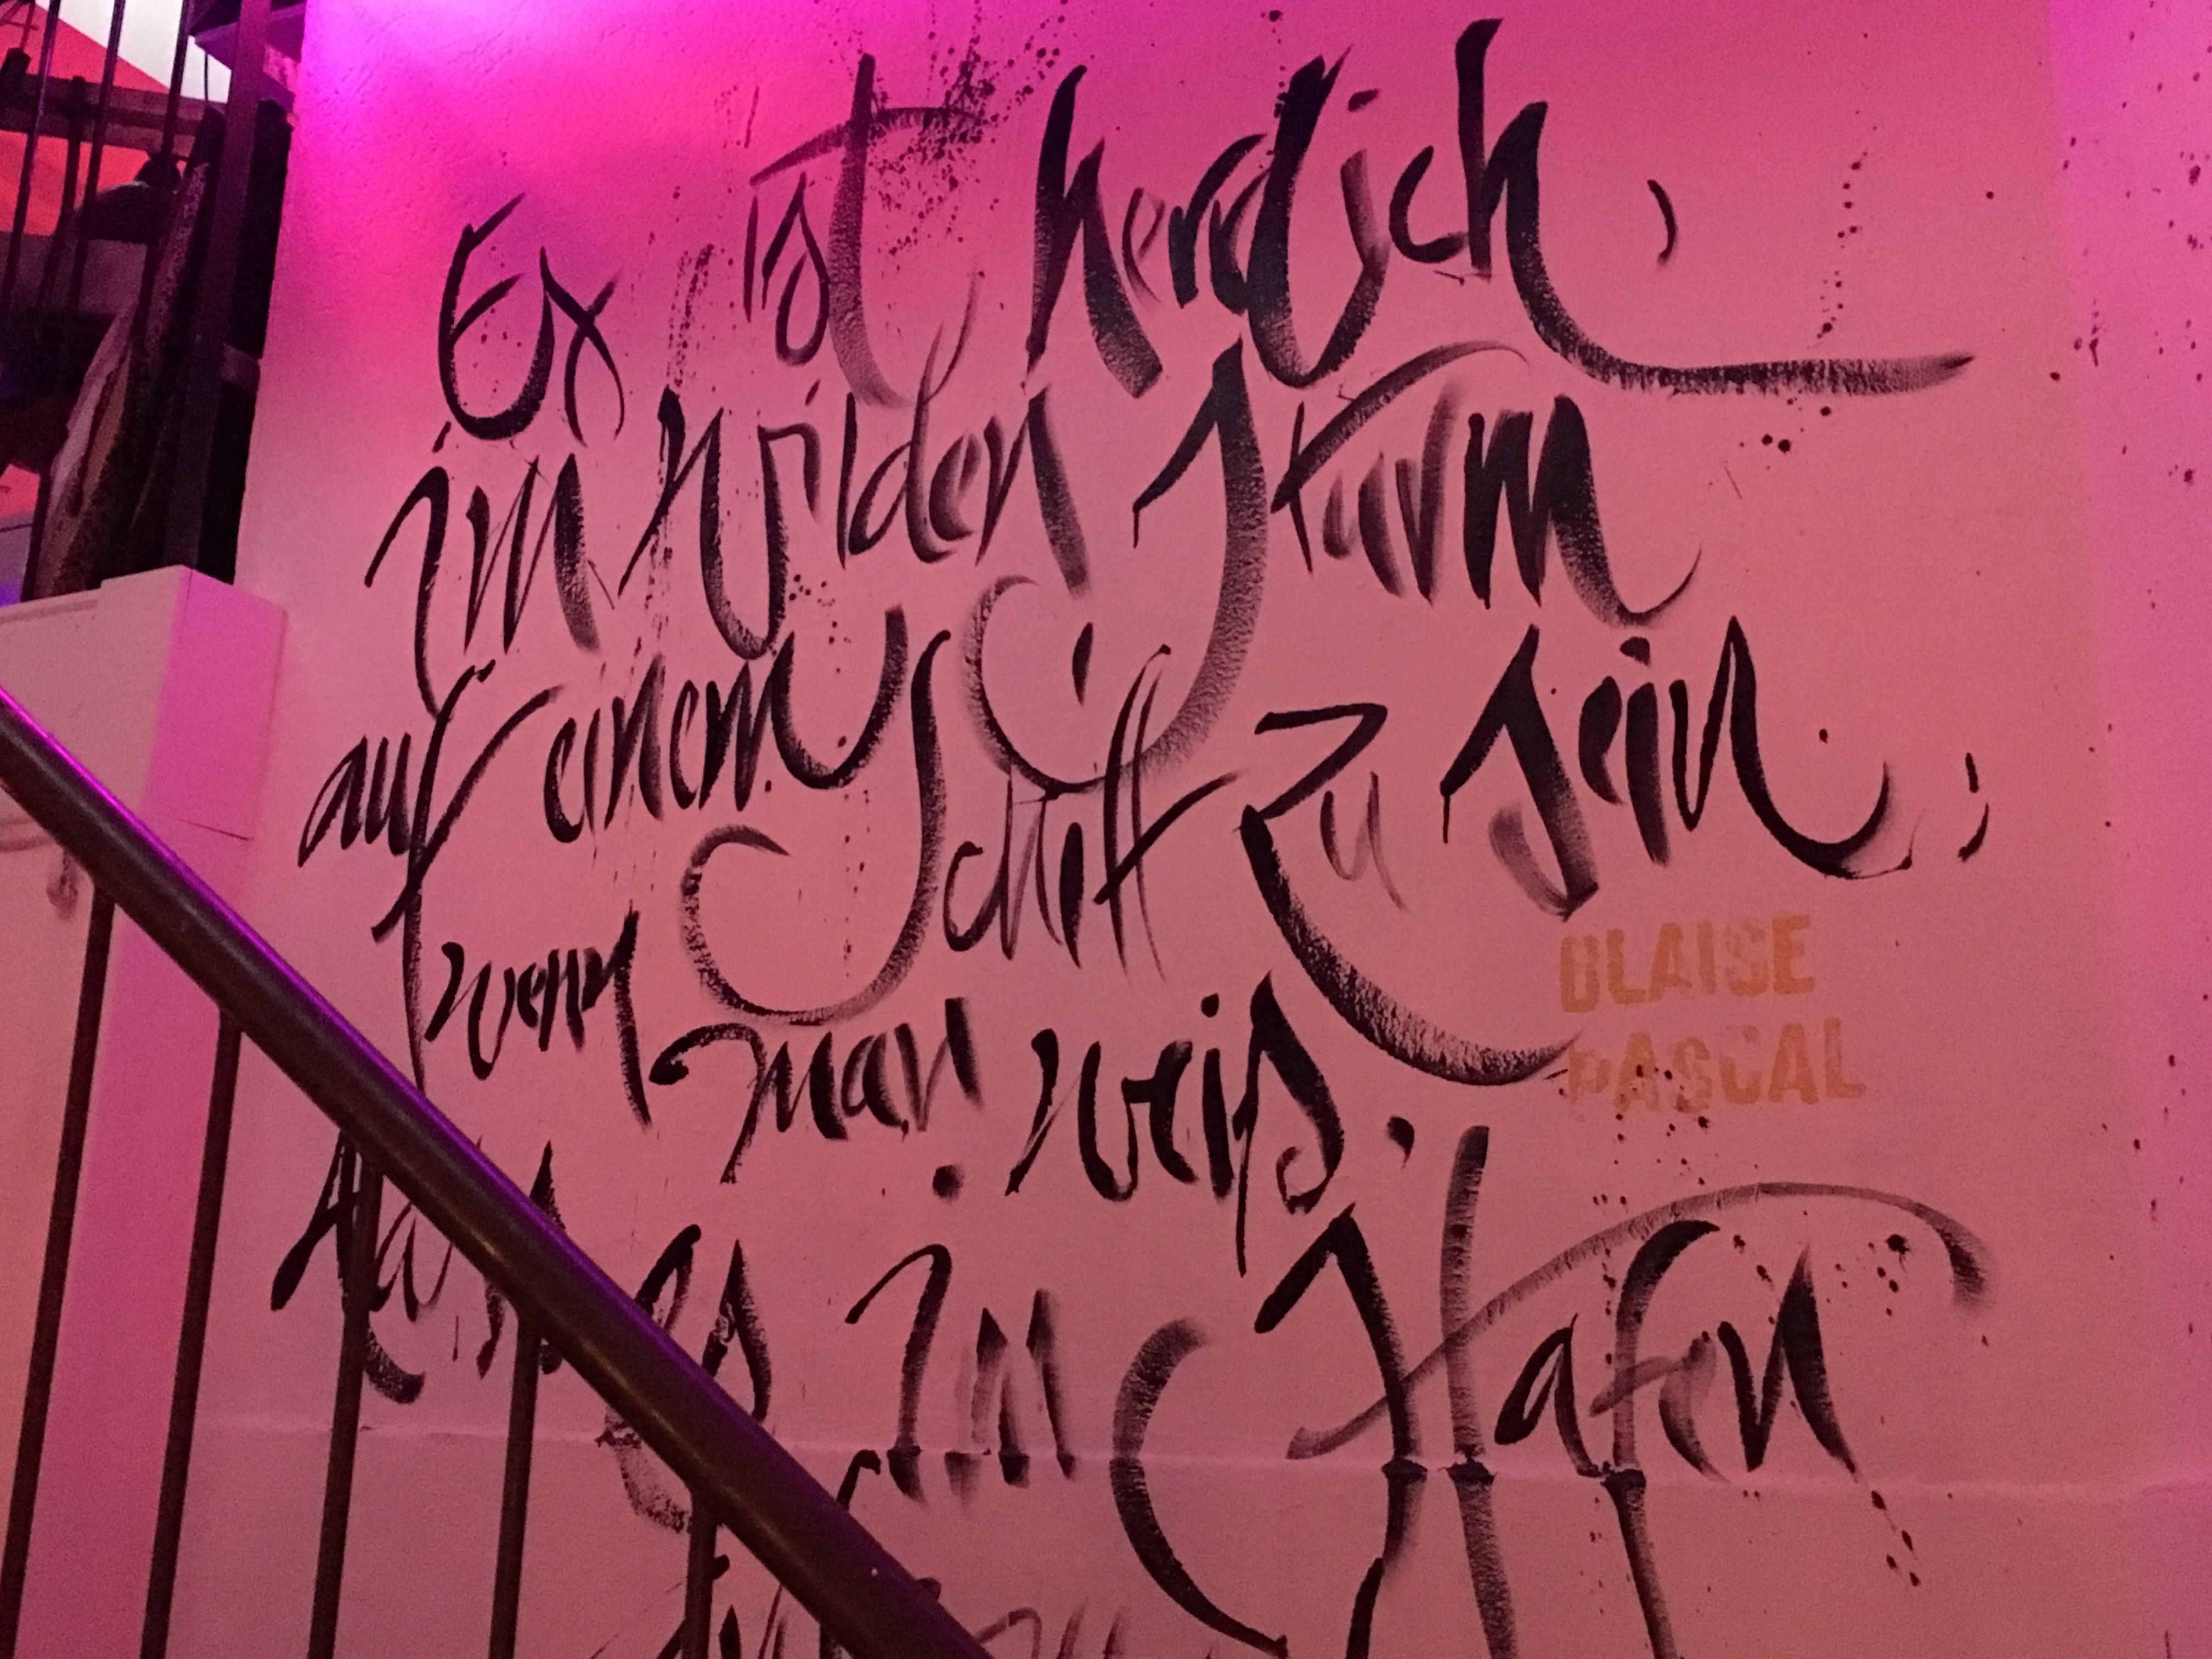 Es ist herrlich,
im wilden Sturm
auf einem Schiff zu sein,
BLAISE
PASCAL
wenn man weiß,
dass es im Hafen